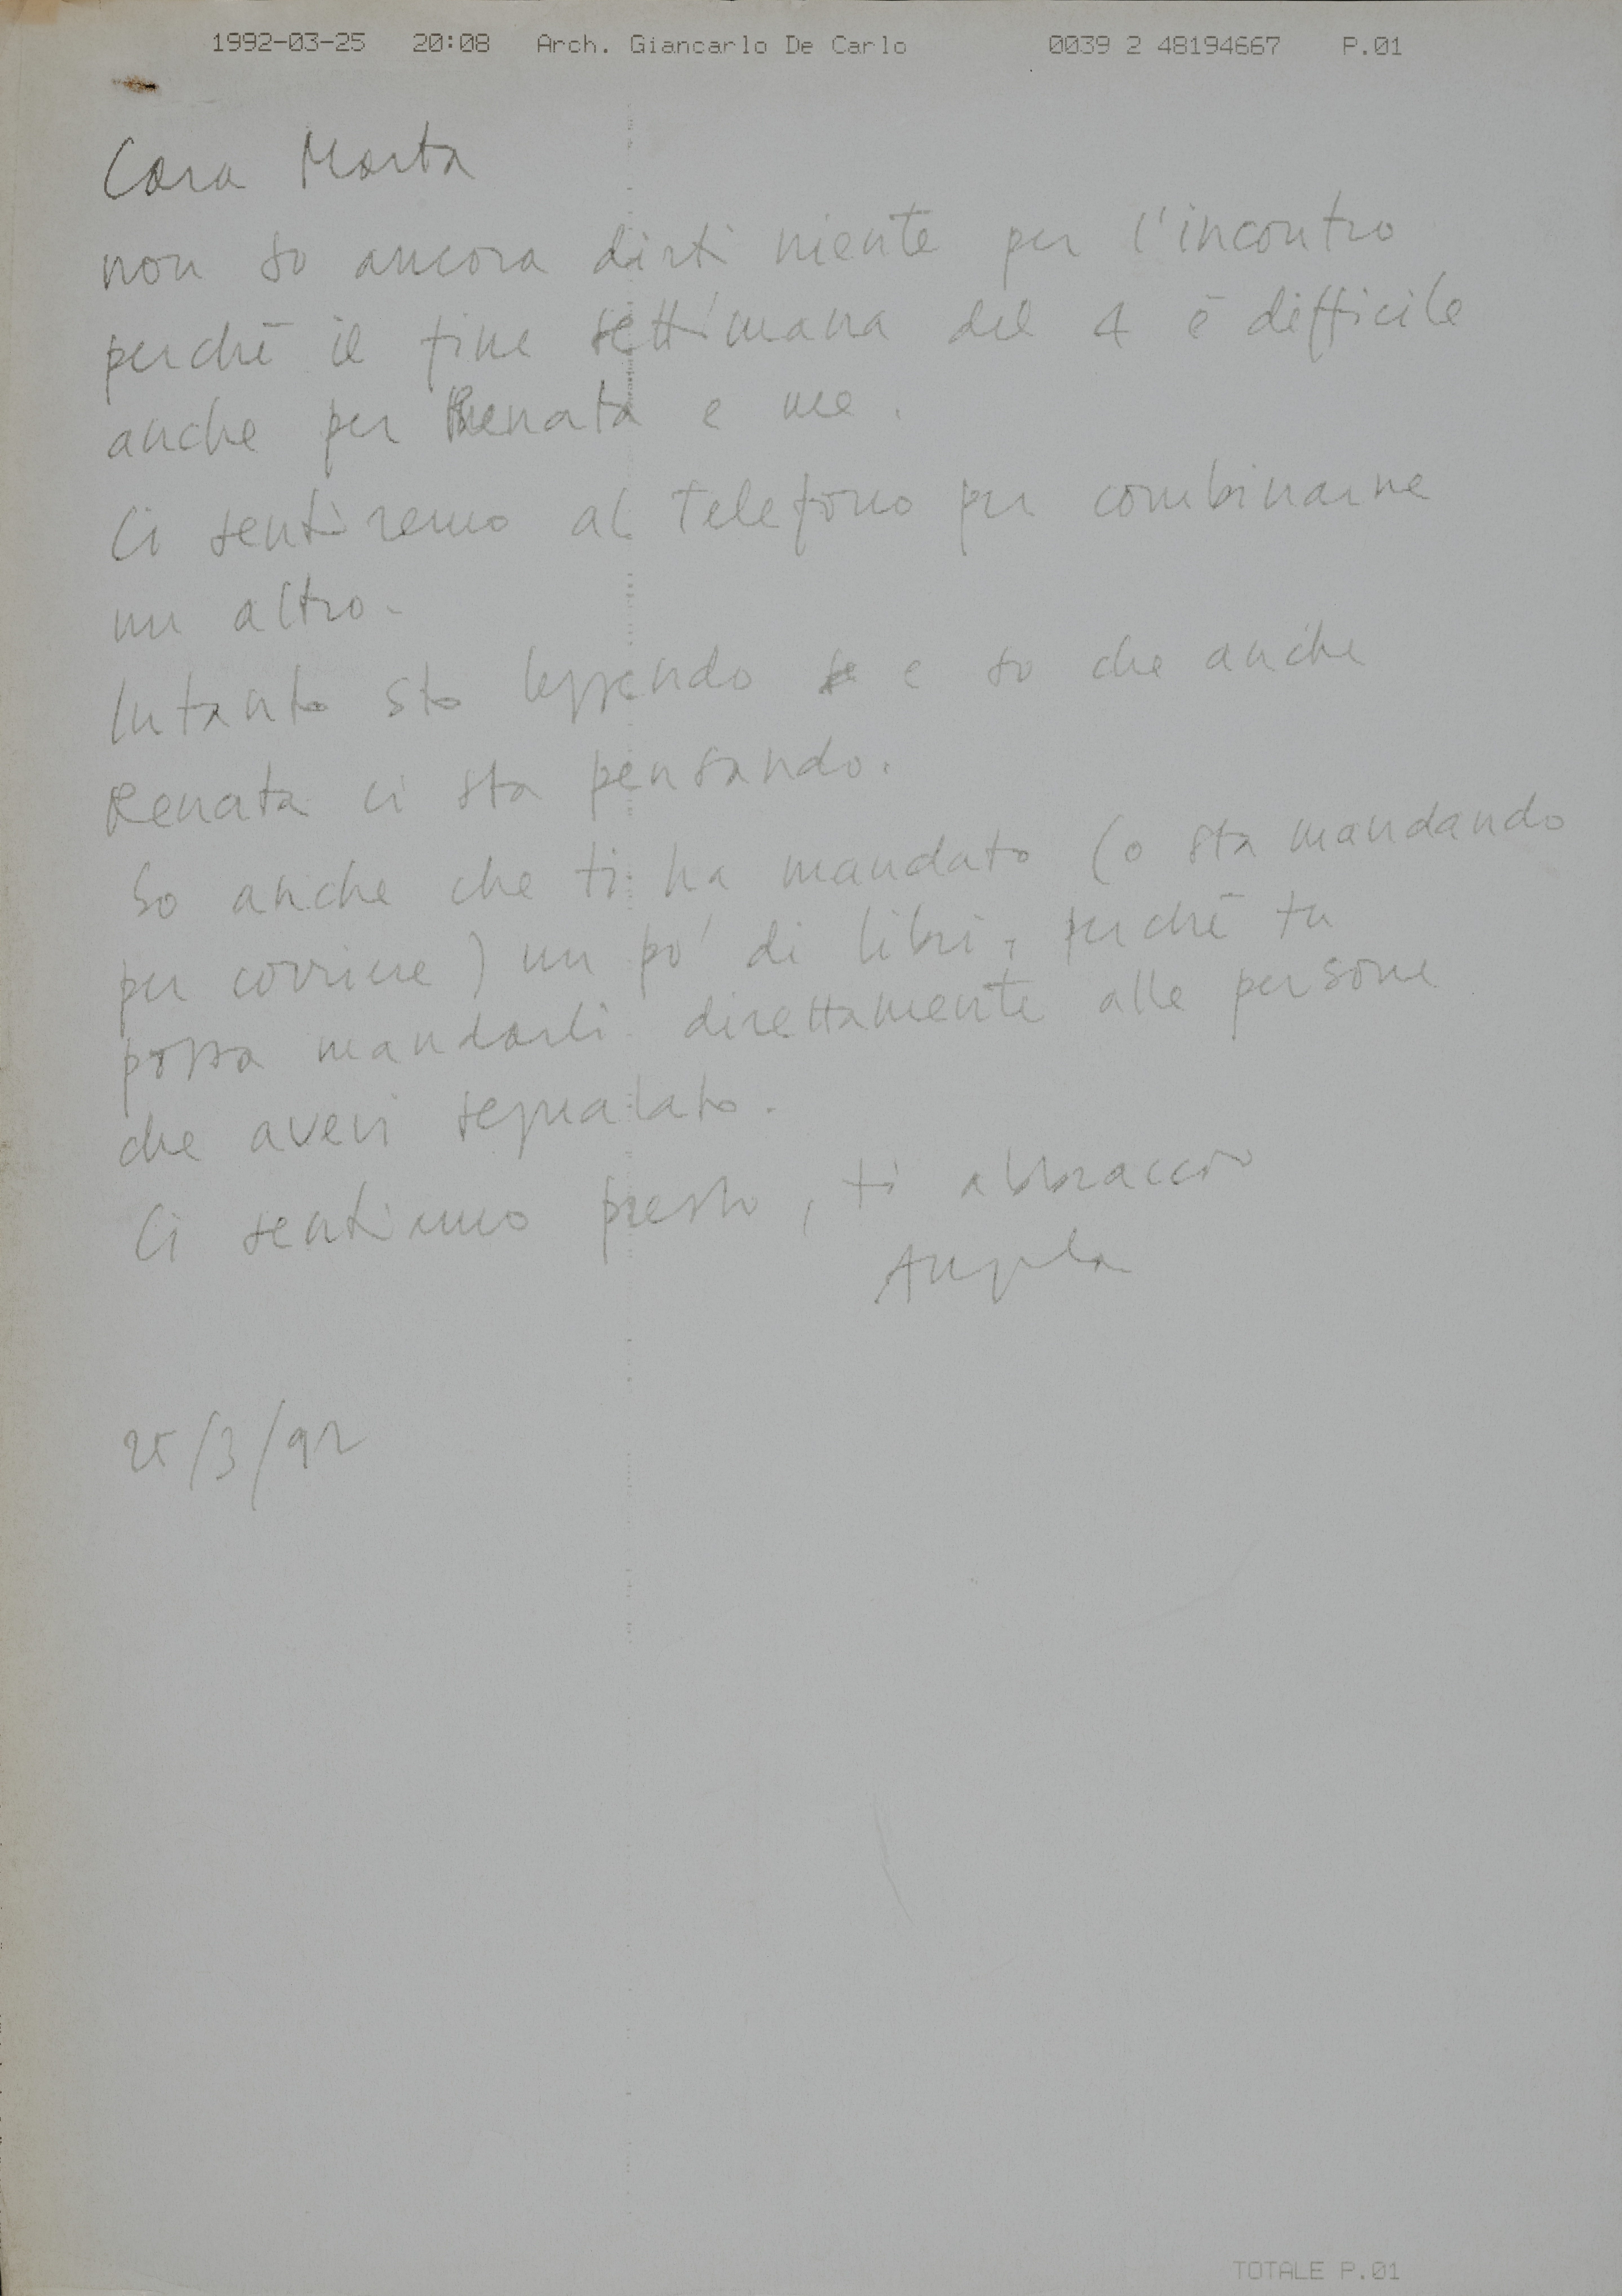 1992-03-25 20:08 Arch. Giancarlo De Carlo 0039 2 48194667 P.01
Cara Marta
non so ancora dirti niente per l'incontro
perchē il fine settimana del 4 ē difficile
anche per Renata e me.
Ci sentiremo al telefono per combinarne
un altro.
Intanto sto leggendo e so che anche
Renata ci sta pensando.
So anche che ti ha mandato (o sta mandando
per corriere) un po' di libri, perchē tu
possa mandarli direttamente alle persone
che avevi segnalato.
Ci sentiamo presto, ti abbraccio
Angela
25/3/92
TOTALE P.01